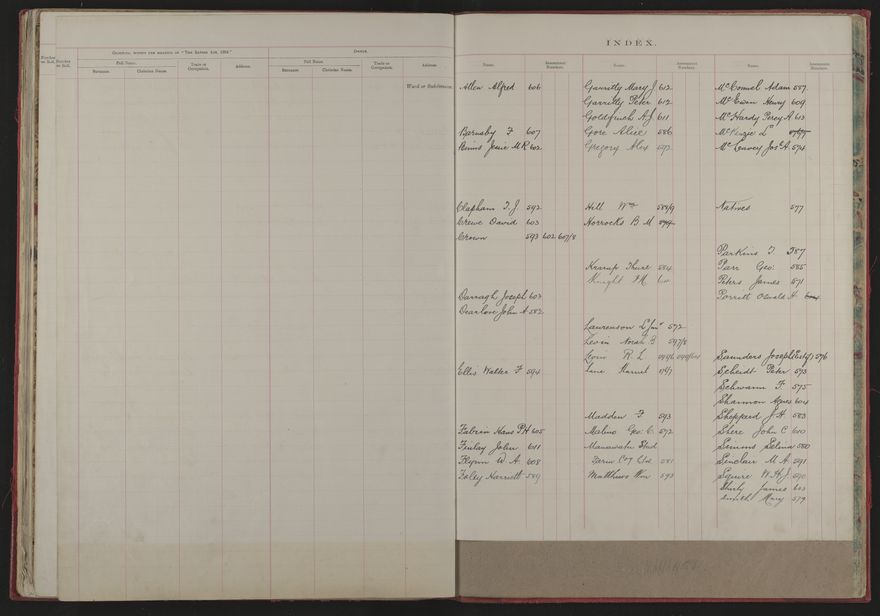 Occupier, within the meaning of "The Rating Act, 1894."
Owner.
Number on Roll.
Number on Roll.
Full Name.
Trade or Occupation.
Address.
Full Name.
Trade or Occupation.
Address.
Surname.
Christian Name.
Surname.
Christian Name.
Ward or Subdivision
INDEX.
Name.
Assessment Numbers.
Name.
Assessment Numbers.
Name.
Assessment Numbers.
Allen Alfred 606
Barnaby F 607
Jessie M R 602
Clapham T. J 592
Crewe David 603
Crown 593 602 607/8
Darragh Joseph 603
Dearlove John A 582
Ellis Walter F 594
Fabian Hans P H 605
Finlay John 611
Flynn W. A. 608
Foley Harriett 589
Garritty Mary J 612
Garritty Peter 612
Goldfinch A J 611
Gore Alice 586
Gregory Alex 592
Hill Wm 588/9
Horrocks B M
Krarup 584
Knight
Laurenson L Jnr 572
Levin Norah B 597/8
Levin R. L
Lane Harriet
Madden F 593
Malins Geo. C. 572
Manawatu
Farm Coy Ltd 581
Matthews Wm 593
McConnel Adam 587
McEwen Henry 609
McHardy Percy A 613
McKenzie L
Jos. A. 574
Natives 577
Parkins T. 587
Parr Geo. 585
Peters James 571
Porritt Oswald H. 604
Saunders Joseph 576
Scheidt Peter 573
Schwamm F. 575
Shannon Agnes 604
Sheppard J. H. 583
Shere John C 610
Simms Selina 580
Sinclair M. A. 591
Squire W. H. J. 590
James 603
Smith Mary 579